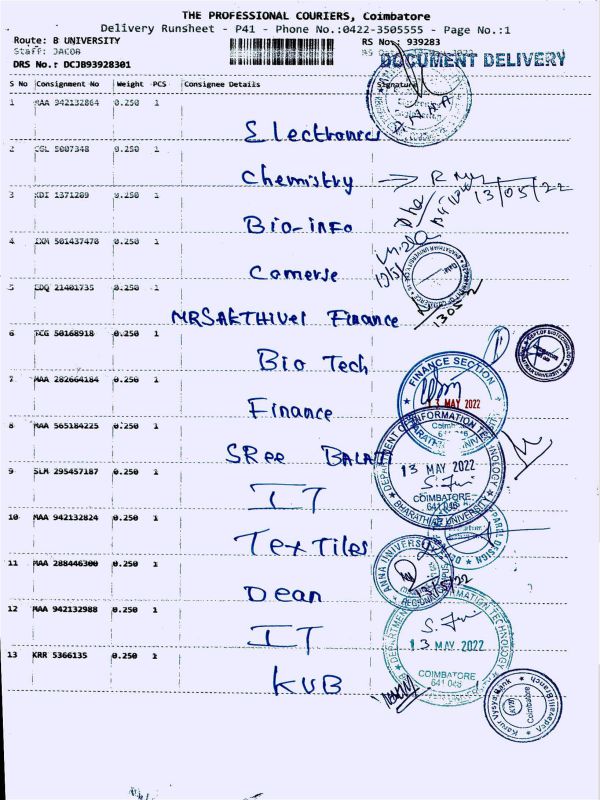 THE PROFESSIONAL COURIERS, Coimbatore
Delivery Runsheet - P41 - Phone No.:0422-3505555 - Page No.:1
Route: B UNIVERSITY RS No.: 939283
Staff: JACOB
DRS No.: DCJB93928301 DOCUMENT DELIVERY
S No Consignment No Weight PCS Consignee Details Signature
1 MAA 942132864 0.250 1
Electronics
2 CGL 5007348 0.250 1
Chemistry → 13/05/22
3 KDI 1371289 0.250 1
Bio-info
4 IXM 501437470 0.250 1
Camerse
5 EDQ 21401735 0.250 1
MRSAKTHIVel Finance
6 TCG 50168918 0.250 1
Bio Tech
7 MAA 282664184 0.250 1
FINANCE SECTION
13 MAY 2022
Finance
8 MAA 565184225 0.250 1
SRee BALAJI
DEPARTMENT OF INFORMATION TECHNOLOGY
13 MAY 2022
9 SLM 295457187 0.250 1
COIMBATORE
641 046
BHARATHIAR UNIVERSITY
IT
10 MAA 942132824 0.250 1
Textiles
ANNA UNIVERSITY
11 MAA 288446300 0.250 1
Dean
12 MAA 942132988 0.250 1
IT
13 MAY 2022
13 KRR 5366135 0.250 1
COIMBATORE
641 046
KVB
Karur Vysya Bank
KVB
Coimbatore